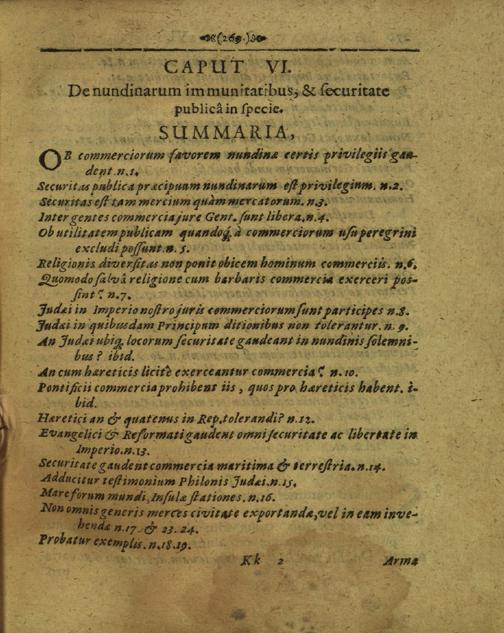 (269.)
CAPUT VI.
De nundinarum immunitatibus, & securitate
publicâ in specie.
SUMMARIA,
OB commerciorum favorem nundinæ certis privilegiis gau-
dent. n.1.
Securitas publica præcipuum nundinarum est privilegium. n.2.
Securitas est tam mercium quàm mercatorum. n.3.
Inter gentes commercia jure Gent. sunt libera. n.4.
Ob utilitatem publicam quandoq; à commerciorum usu peregrini
excludi possunt. n.5.
Religionis diversitas non ponit obicem hominum commerciis. n.6.
Quomodo salvâ religione cum barbaris commercia exerceri pos-
sint? n.7.
Judæi in Imperio nostro juris commerciorum sunt participes n.8.
Judæi in quibusdam Principum ditionibus non tolerantur. n. 9.
An Judæi ubiq; locorum securitate gaudeant in nundinis solemni-
bus? ibid.
An cum hæreticis licitè exerceantur commercia? n.10.
Pontificii commercia prohibent iis, quos pro hæreticis habent. i-
bid.
Hæretici an & quatenus in Rep. tolerandi? n.12.
Evangelici & Reformati gaudent omni securitate ac libertate in
Imperio. n.13.
Securitate gaudent commercia maritima & terrestria. n.14.
Adducitur testimonium Philonis Judæi. n.15.
Mare forum mundi, Insulæ stationes. n.16.
Non omnis generis merces civitate exportandæ, vel in eam inve-
hendæ n.17. & 23.24.
Probatur exemplis. n.18.19.
Kk 2 Arma